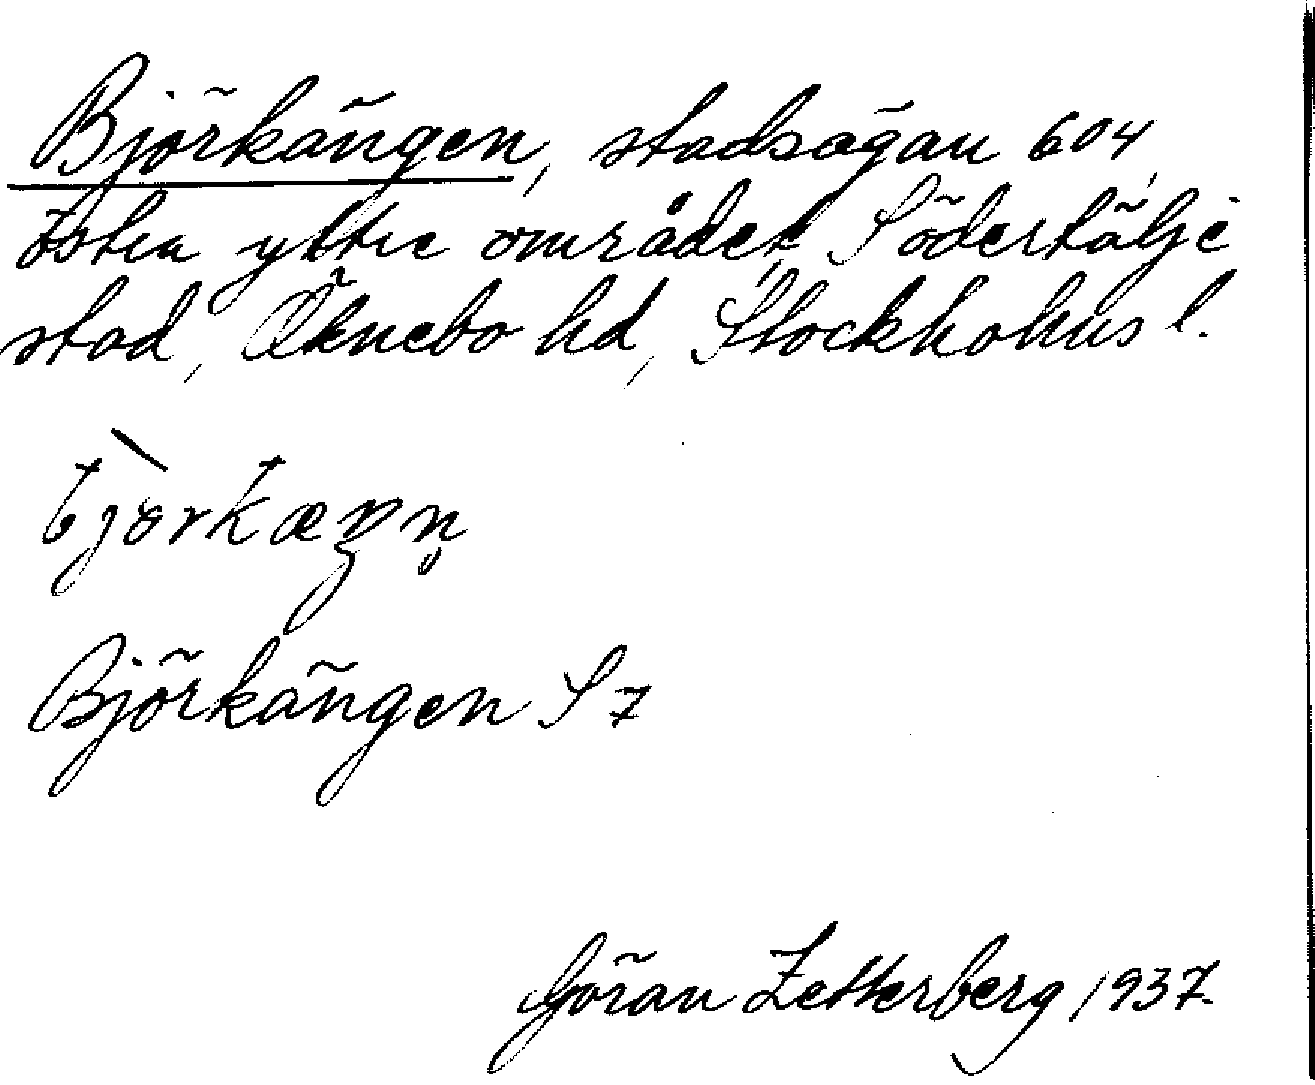 Björkängen, stadsägan 604,
östra yttre området, Södertälje
stad, Öknebo hd, Stockholms l.
bjòrkæŋn̥
Björkängen S 7
Göran Zetterberg 1937.